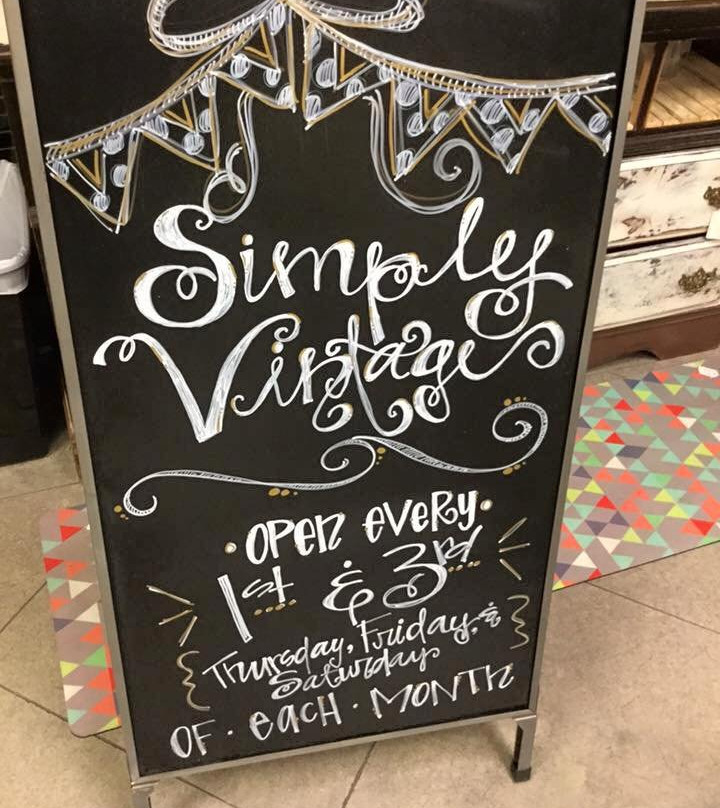 Simply
Vintage
OPEN EVERY
1st & 3rd
Thursday, Friday, &
Saturday
OF · EACH · MONTH